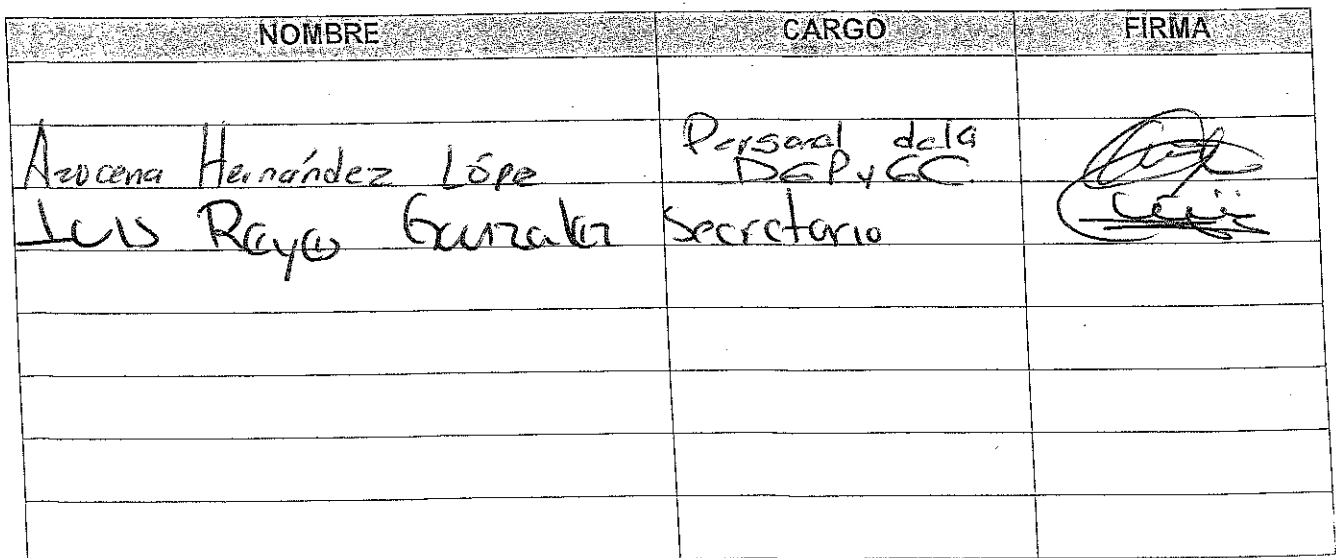 NOMBRE CARGO FIRMA
Azucena Hernández López Personal de la
DGPyGC
Luis Rayas González Secretario